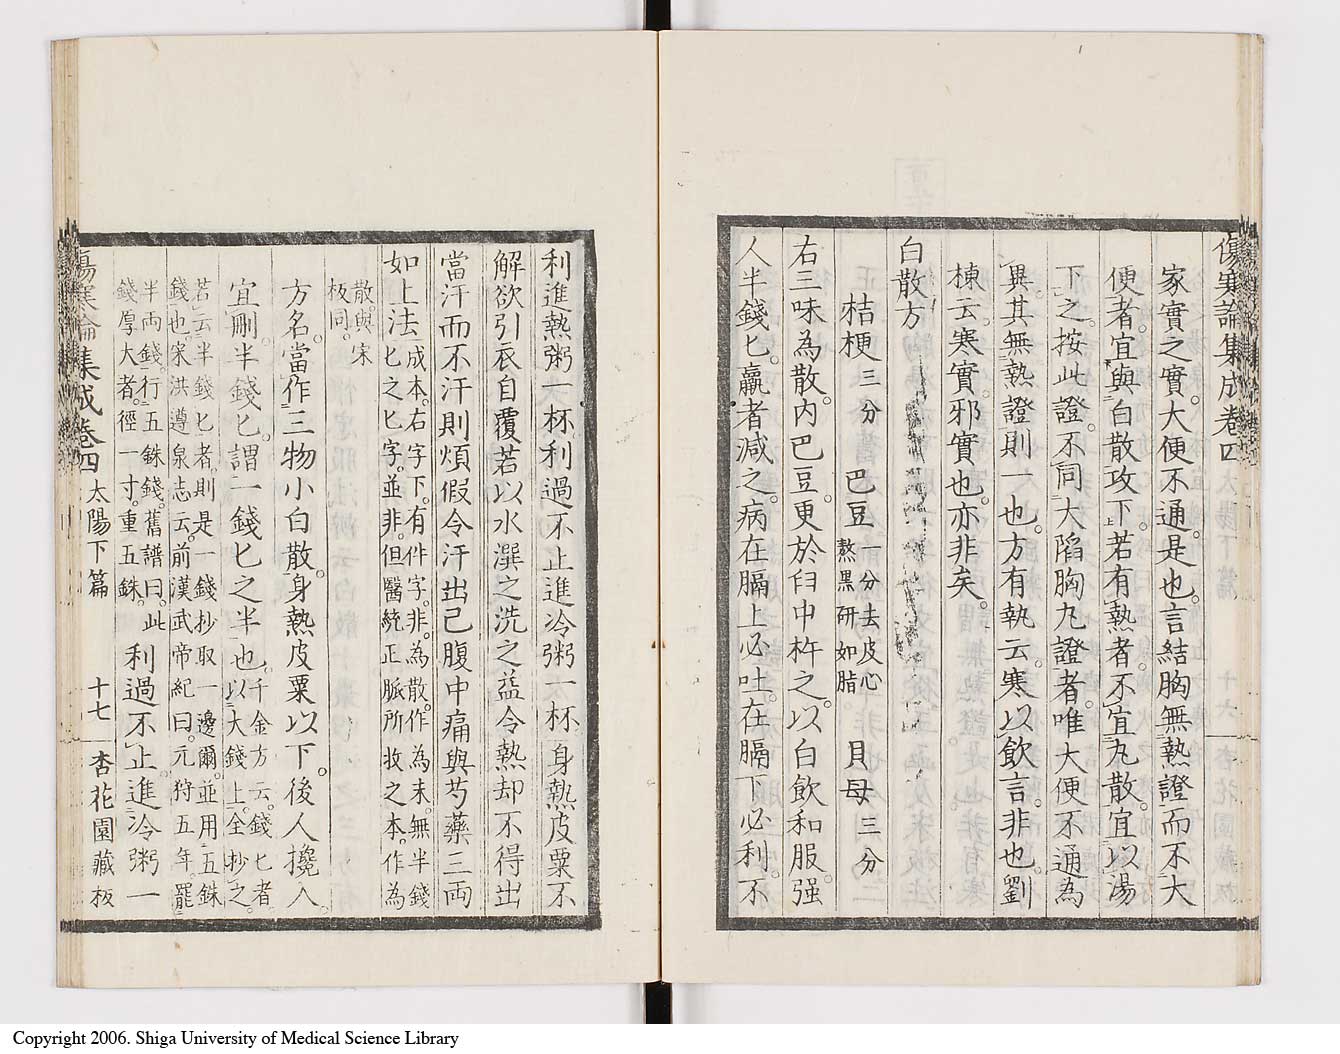 傷寒論集成卷四
家實之實。大便不通。是也。言結胸無熱證而不大
便者。宜與白散攻下。若有熱者。不宜丸散。宜以湯
下之。按此證。不同大陷胸丸證者。唯大便不通為
異。其無熱證則一也。方有執云。寒以飲言。非也。劉
棟云。寒實邪實也。亦非矣。
白散方
桔梗三分 巴豆一分去皮心熬黑研如脂 貝母三分
右三味為散。內巴豆。更於臼中杵之。以白飲和服。强
人半錢匕。羸者減之。病在膈上必吐。在膈下必利。不
利進熱粥一杯。利過不止。進冷粥一杯。身熱皮粟不
解。欲引衣自覆。若以水潠之洗之。益令熱却不得出。
當汗而不汗則煩。假令汗出已。腹中痛。與芍藥三両
如上法。成本。右字下。有件字。非。為散。作為末。無半錢
匕之匕字。並非。但醫統正脈所收之本。作為
散。與宋
板同。
方名。當作三物小白散。身熱皮粟以下。後人攙入。
宜刪。半錢匕。謂一錢匕之半也。千金方云。錢匕者
以大錢上。全抄之。
若云半錢匕者。則是一錢抄取一邊爾。並用五銖
錢也。宋洪遵泉志云。前漢武帝紀曰。元狩五年。罷
半両錢。行五銖錢。舊譜曰。此
錢厚大者。徑一寸。重五銖。
利過不止。進冷粥一
傷寒論集成卷四 太陽下篇 十七 杏花園藏板
Copyright 2006. Shiga University of Medical Science Library